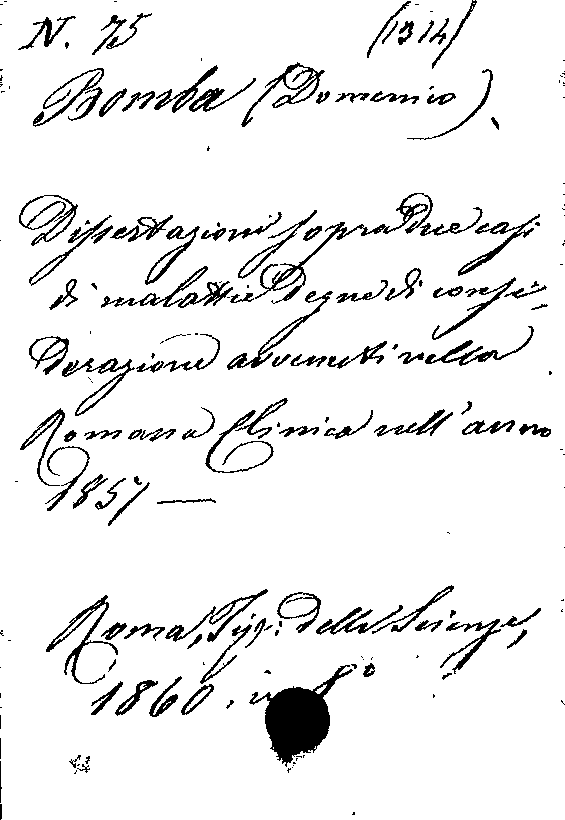 N. 75 (1314)
Bomba (Domenico).
Dissertazioni sopra due casi
di malattie degne di consi-
derazione avvenuti nella
Romana Clinica nell'anno
1857 —
Roma, Tip: delle Scienze,
1860. in 8°